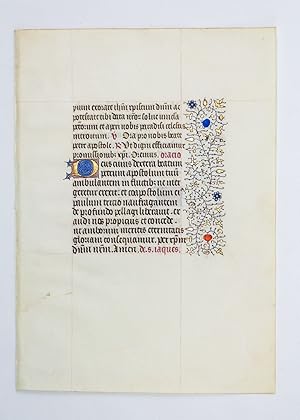 pium exorare ihm xpistum dnm ac
potestate tibi data nros solue uincla
et aperi nobis paradisi celestis
introitum. V Ora pro nobis beate
petre apostole. R Ut digni efficiamur
promissionibus xpi. Oremus. oracio
Deus cuius dextera beatum
petrum apostolum tuu
ambulantem in fluctibus ne mer
geretur erexit: et coapostolum eius
paulum tercio naufragantem
de profundo pellagi liberauit. ex
audi nos propicius et concede.
ut amborum meritis eternitatis
gloriam consequamur. per xpm
dnm nrm. Amen. de. s. iaques.